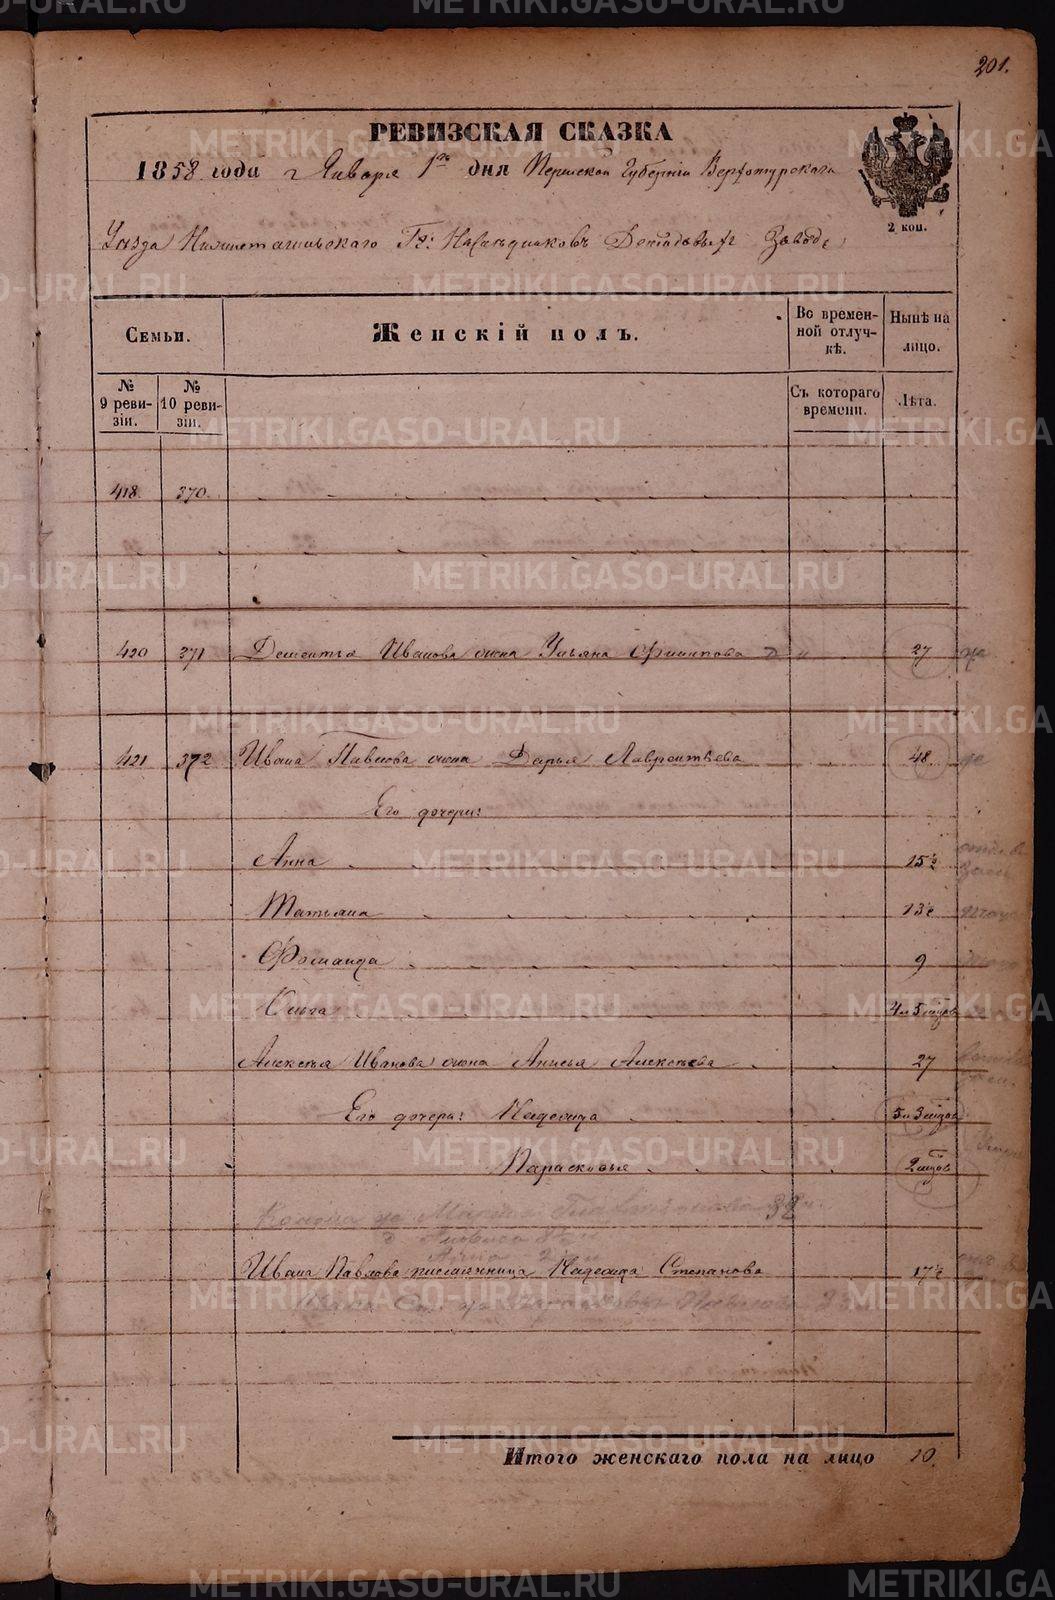 201.
РЕВИЗСКАЯ СКАЗКА
1858 года Января 1го дня Пермской Губерніи Верхотурскаго
2 коп.
Уѣзда Нижнетагильскаго Гг: Наслѣдниковъ Демидовыхъ Завода
Семьи.
Женскій полъ.
Во временной отлучкѣ.
Нынѣ на лицо.
№ 9 ревизіи.
№ 10 ревизіи.
Съ котораго времени.
Лѣта.
418. 370.
420 371 Дементья Иванова жена Ульяна Филипова 27
421 372 Ивана Павлова жена Дарья Лаврентьева 48
Его дочери:
Анна 15½
Татьяна 13½
Фоманда 9
Ольга 4 и 5 мѣсцов
Алексѣя Иванова жена Анисья Алексѣева 27
Его дочери: Надежда 5 и 3 мѣсцов
Парасковья 2 мѣсцов
Ивана Павлова племянница Надежда Степанова 17½
Итого женскаго пола на лицо 10.
METRIKI.GASO-URAL.RU